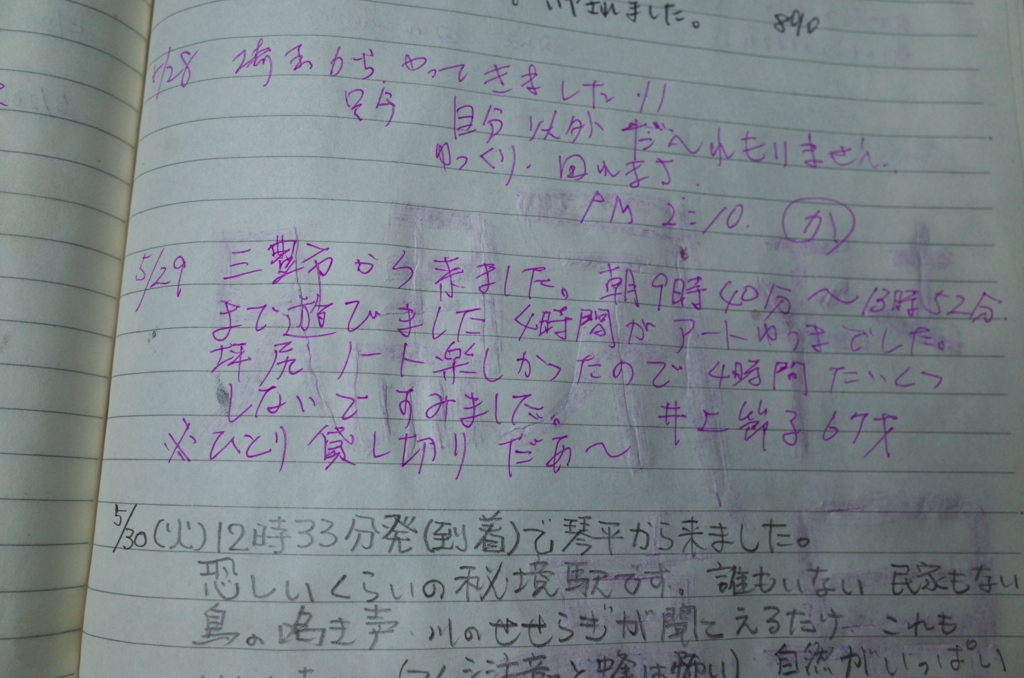 されました。 890
/28 埼玉からやってきました!!
自分以外だ〜れもいません
ゆっくり. 回れます.
PM 2=10. か
5/29 三豊市から来ました。朝9時40分〜13時52分
まで遊びました 4時間が アート でした。
坪尻ノート楽しかったので4時間たいくつ
しないですみました。 井上節子67才
※ひとり貸し切りだあ〜
5/30(火)12時33分発(到着)で琴平から来ました。
恐しいくらいの秘境駅です。誰もいない 民家もない
鳥の鳴き声 川のせせらぎが聞こえるだけ これも
注意 と蜂は怖い) 自然がいっぱい